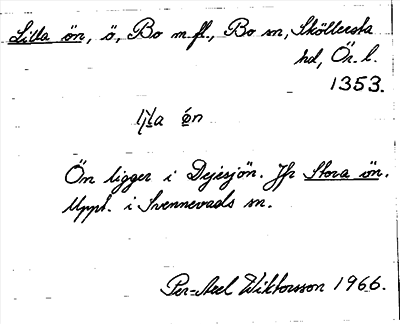 Lilla ön, ö, Bo m.fl., Bo sn, Sköllersta
hd, Ör. l.
1353.
ön
Ön ligger i Dejesjön. Jfr Stora ön.
Uppt. i Svennevads sn.
Per-Axel Wiktorsson 1966.